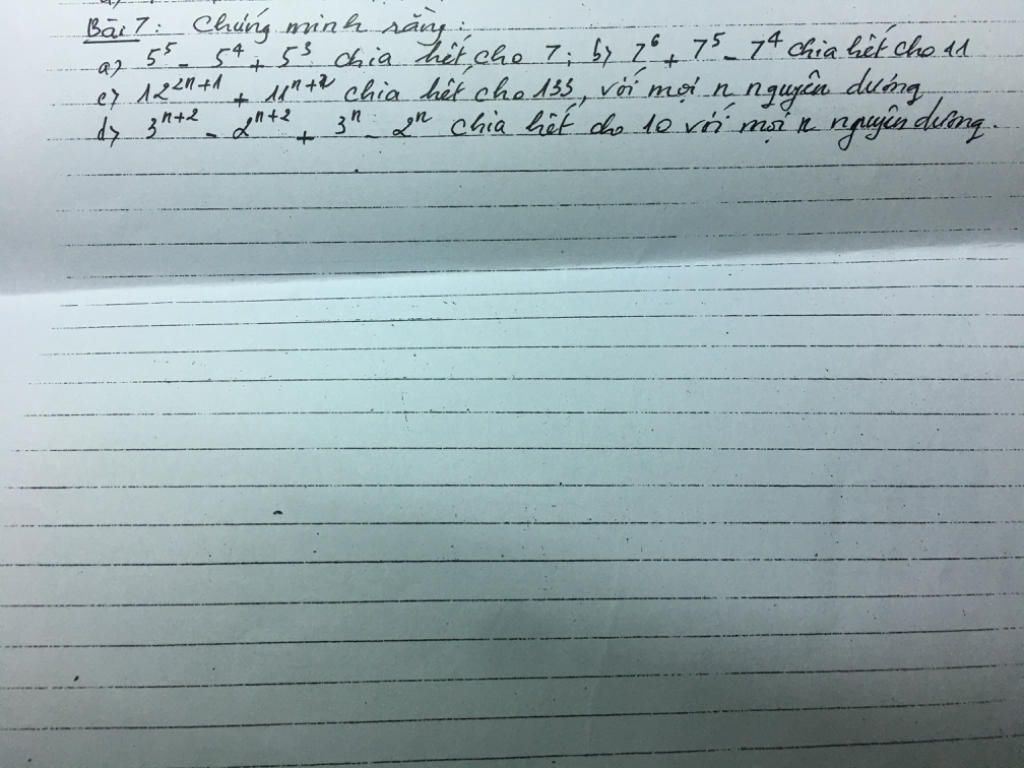 Bài 7: Chứng minh rằng:
a) 5⁵ - 5⁴ + 5³ chia hết cho 7; b) 7⁶ + 7⁵ - 7⁴ chia hết cho 11
c) 12²ⁿ⁺¹ + 11ⁿ⁺² chia hết cho 133, với mọi n nguyên dương
d) 3ⁿ⁺² - 2ⁿ⁺² + 3ⁿ - 2ⁿ chia hết cho 10 với mọi n nguyên dương.